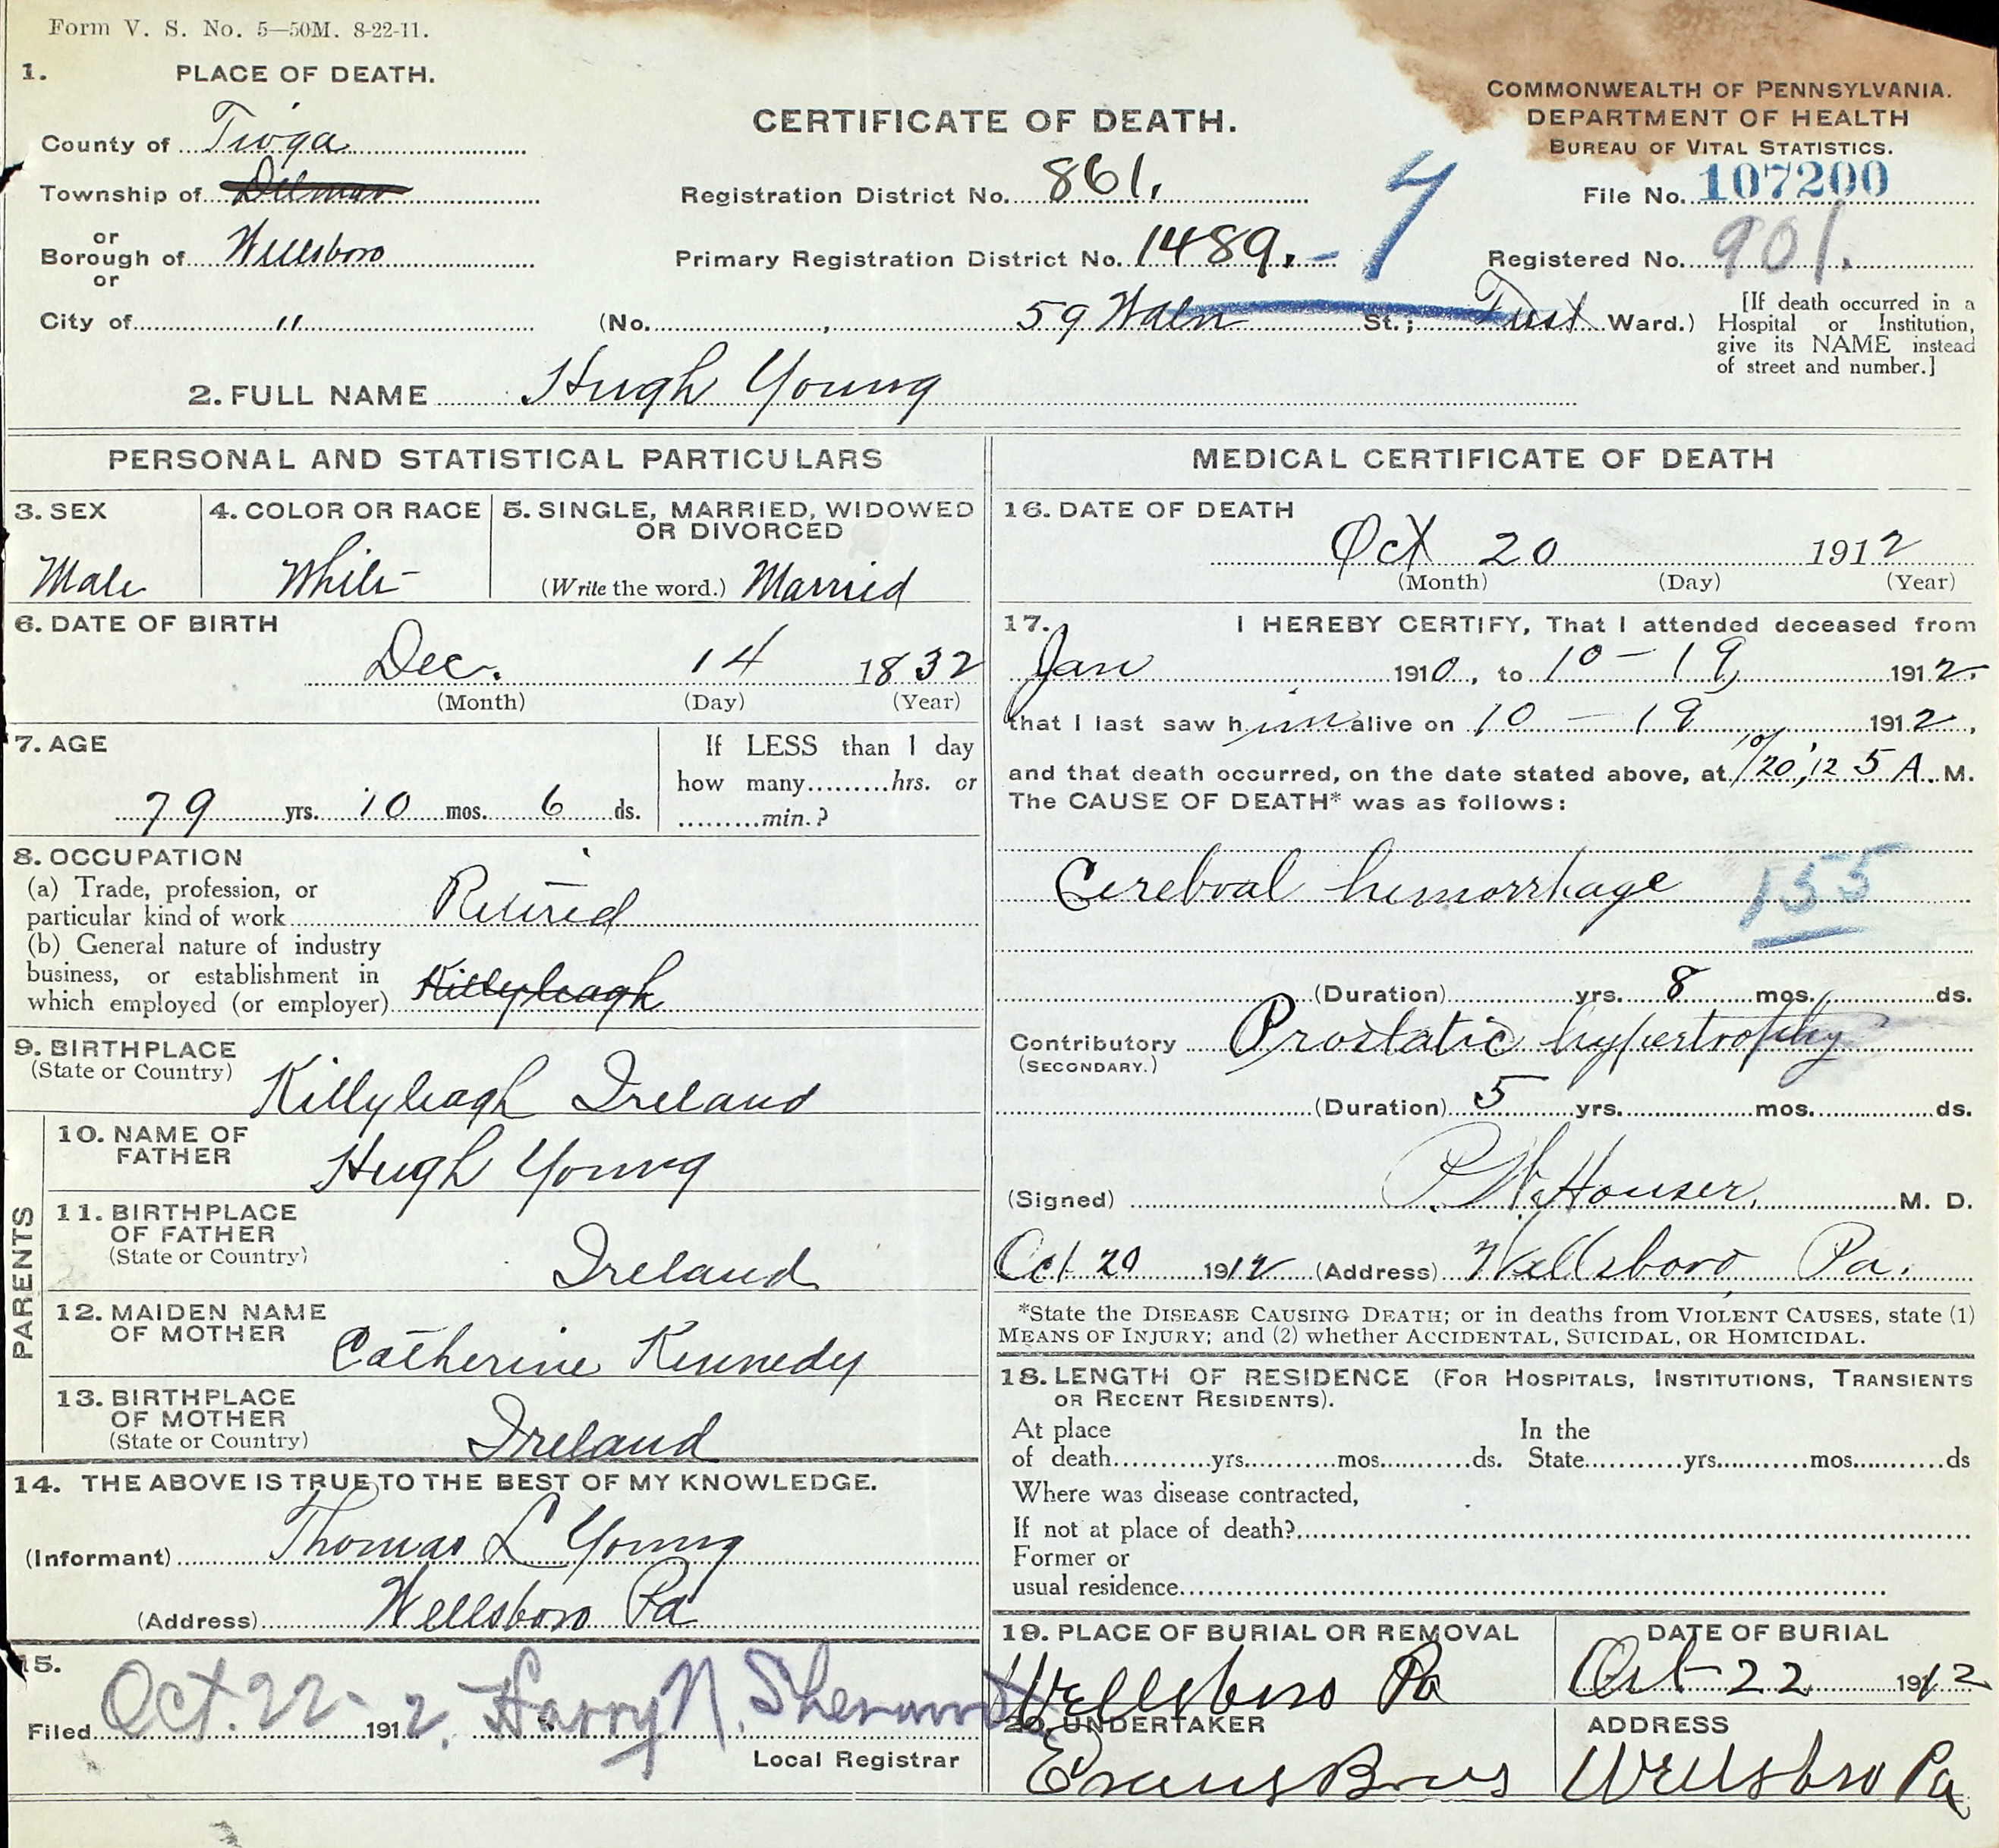 Form V. S. No. 5—50M. 8-22-11.
1. PLACE OF DEATH.
County of Tioga
Township of Delmar
or
Borough of Wellsboro
or
City of "
CERTIFICATE OF DEATH.
Registration District No. 861.
Primary Registration District No. 1489.
(No. , 59 Waln St.; First Ward.)
COMMONWEALTH OF PENNSYLVANIA.
DEPARTMENT OF HEALTH
BUREAU OF VITAL STATISTICS.
File No. 107200
Registered No. 901.
[If death occurred in a
Hospital or Institution,
give its NAME instead
of street and number.]
2. FULL NAME Hugh Young
PERSONAL AND STATISTICAL PARTICULARS
3. SEX
Male
4. COLOR OR RACE
White
5. SINGLE, MARRIED, WIDOWED
OR DIVORCED
(Write the word.) Married
6. DATE OF BIRTH
Dec. 14 1832
(Month) (Day) (Year)
7. AGE
79 yrs. 10 mos. 6 ds.
If LESS than 1 day
how many hrs. or
min.?
8. OCCUPATION
(a) Trade, profession, or
particular kind of work Retired
(b) General nature of industry
business, or establishment in
which employed (or employer) Killyleagh
9. BIRTHPLACE
(State or Country) Killyleagh Ireland
PARENTS
10. NAME OF
FATHER Hugh Young
11. BIRTHPLACE
OF FATHER
(State or Country) Ireland
12. MAIDEN NAME
OF MOTHER Catherine Kennedy
13. BIRTHPLACE
OF MOTHER
(State or Country) Ireland
14. THE ABOVE IS TRUE TO THE BEST OF MY KNOWLEDGE.
(Informant) Thomas L Young
(Address) Wellsboro Pa
15.
Filed Oct. 22 - 1912. Harry N.
Local Registrar
MEDICAL CERTIFICATE OF DEATH
16. DATE OF DEATH
Oct 20 1912
(Month) (Day) (Year)
17. I HEREBY CERTIFY, That I attended deceased from
Jan 1910, to 10 - 19, 1912.
that I last saw him alive on 10 - 19 1912,
and that death occurred, on the date stated above, at 10/20,'12 5 A. M.
The CAUSE OF DEATH* was as follows:
Cerebral hemorrhage 155
(Duration) yrs. 8 mos. ds.
Contributory Prostatic hypertrophy
(SECONDARY.)
(Duration) 5 yrs. mos. ds.
(Signed) Houser, M. D.
Oct 20 1912 (Address) Wellsboro Pa.
*State the DISEASE CAUSING DEATH; or in deaths from VIOLENT CAUSES, state (1)
MEANS OF INJURY; and (2) whether ACCIDENTAL, SUICIDAL, OR HOMICIDAL.
18. LENGTH OF RESIDENCE (FOR HOSPITALS, INSTITUTIONS, TRANSIENTS
OR RECENT RESIDENTS).
At place
of death yrs. mos. ds.
In the
State yrs. mos. ds
Where was disease contracted,
If not at place of death?
Former or
usual residence
19. PLACE OF BURIAL OR REMOVAL
Wellsboro Pa
DATE OF BURIAL
Oct 22 1912
20. UNDERTAKER
Evans Bros
ADDRESS
Wellsboro Pa